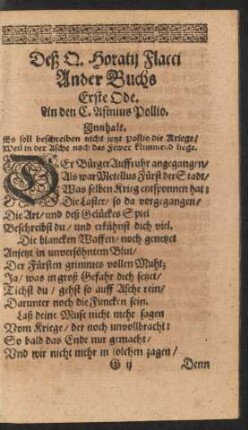 Deß Q. Horatij Flacci
Ander Buchs
Erste Ode.
An den C. Asinius Pollio.
Innhalt.
Es soll beschreiben nicht jetzt Pollio die Kriege/
Weil in der Asche noch das Fewer klimmend liege.
DEr Bürger Auffruhr angegangen/
Als war Metellus Fürst der Stadt/
Was selben Krieg entsponnen hat:
Die Laster/ so da vorgegangen/
Die Art/ und deß Gelückes Spiel
Beschreibst du/ und erkühnst dich viel.
Die blancken Waffen/ noch genetzet
Anjetzt in unversöhntem Blut/
Der Fürsten grimmes vollen Muht;
Ja/ was in groß Gefahr dich setzet/
Tichst du/ gehst so auff Asche rein/
Darunter noch die Funcken sein.
Laß deine Muse nicht mehr sagen
Vom Kriege/ der noch unvollbracht:
So bald das Ende nur gemacht/
Und wir nicht mehr in solchen zagen/
G ij Denn